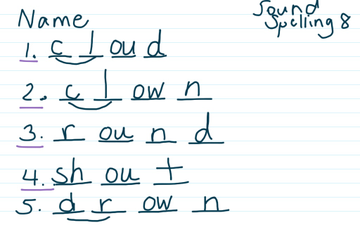 Name
Sound
Spelling 8
1. c l ou d
2. c l ow n
3. r ou n d
4. sh ou t
5. d r ow n